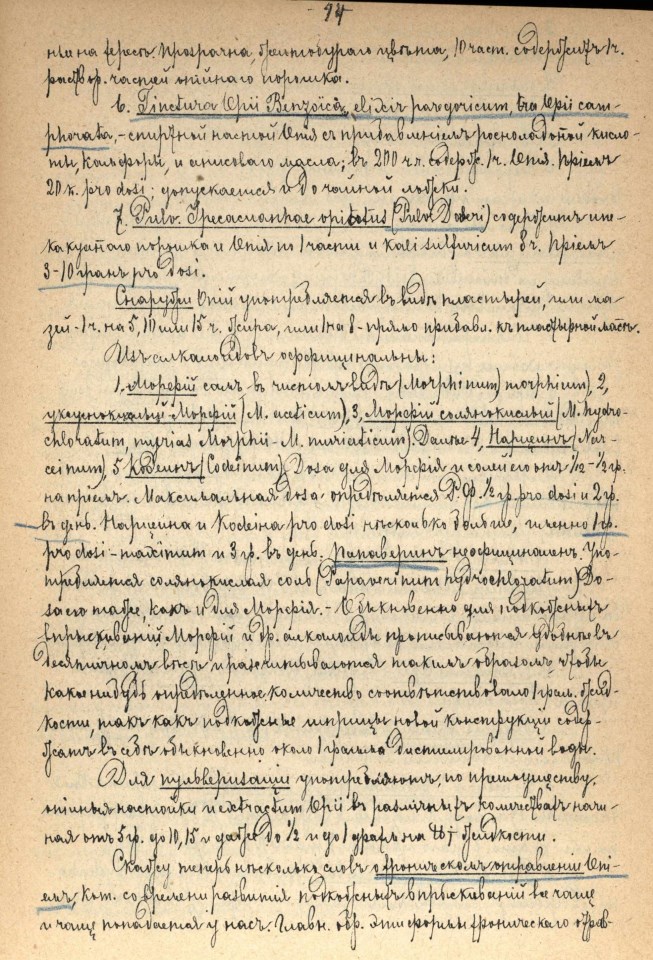 - 94
на хересѣ. Прозрачна, желтобураго цвѣта, 10 част. содержитъ 1 ч.
раствор. частей опійнаго порошка.
6. Tinctura Opii Benzoïca, elixir paregoricum, tra Opii cam-
phorata, - спиртной настой Опія съ прибавленіемъ росноладонной кисло-
ты, камфоры, и анисоваго масла; въ 200 ч. содерж. 1 ч. Опія. Пріемъ
20 к. pro dosi; допускается и до чайной ложки.
7. Pulv. Ipecacuanhae opiatus (Pulv. Doveri) содержитъ ипе-
какуаннаго порошка и Опія по 1 части и Kali sulfuricum 8 ч. Пріемъ
3-10 гранъ pro dosi.
Снаружи Опій употребляется въ видѣ пластырей, или ма-
зей - 1 ч. на 5, 10 или 15 ч. жира, или 1 на 8 - прямо прибавл. къ пластырной массѣ.
Изъ алкалоидовъ оффицинальны:
1. Морфій самъ въ чистомъ видѣ (Morphinum) morphium), 2,
уксуснокислый Морфій (M. aceticum), 3, Морфій солянокислый (M. hydro-
chloratum, myrias Morphii - M. muriaticum). Далѣе 4, Нарцеинъ (Nar-
ceinum), 5 Кодеинъ (Codeinum). Dosa для Морфія и солей его отъ
на пріемъ. Максимальная dosa опредѣляется ½ гр. pro dosi и 2 гр.
въ день. Нарцеина и Кодеина pro dosi нѣсколько больше, именно 1 гр.
pro dosi - maximum и 3 гр. въ день. Папаверинъ неофициналенъ. Упо-
требляется солянокислая соль (Papaverinum hydrochloratum). Do-
sa его таже, какъ и для Морфія. - Обыкновенно для подкожныхъ
впрыскиваній Морфій и др. алкалоиды прописываются удобнѣе въ
десятичномъ вѣсѣ и разсчитываются такимъ образомъ, чтобы
какое нибудь опредѣленное количество соотвѣтствовало 1 грам. жид-
кости, такъ какъ подкожные шприцы новой конструкціи содер-
жатъ въ себѣ обыкновенно около 1 грамма дистиллированной воды.
Для пульверизаціи употребляютъ, по преимуществу,
опійныя настойки и extractum Opii въ различныхъ количествахъ начи-
ная отъ 5 гр. до 10, 15 и даже до ½ и до 1 драхм. на жидкости.
Скажу теперь нѣсколько словъ о хроническомъ отравленіи Опі-
емъ, кот. со времени развитія подкожныхъ впрыскиваній все чаще
и чаще попадается у насъ. Главн. обр. эти формы хроническаго отрав-